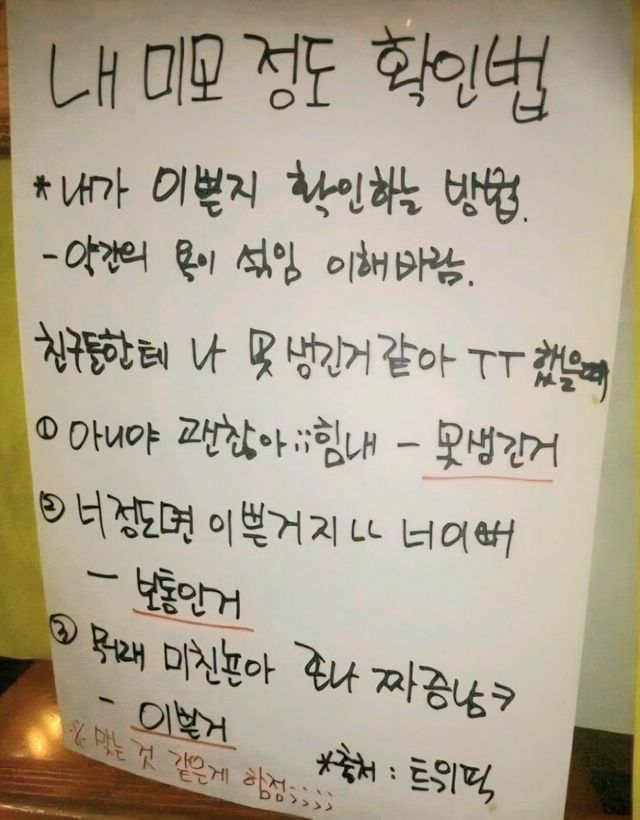 내 미모 정도 확인법
* 내가 이쁜지 확인하는 방법.
- 약간의 욕이 섞임 이해바람.
친구들한테 나 못생긴거같아 ㅜㅜ 했을때
① 아니야 괜찮아;; 힘내 - 못생긴거
② 너정도면 이쁜거지 ㄴㄴ 너이뻐
- 보통인거
③ 뭐래 미친년아 존나 짜증남ㅋ
- 이쁜거
※ 맞는 것 같은게 함정;;;;
*출처 : 트위픽